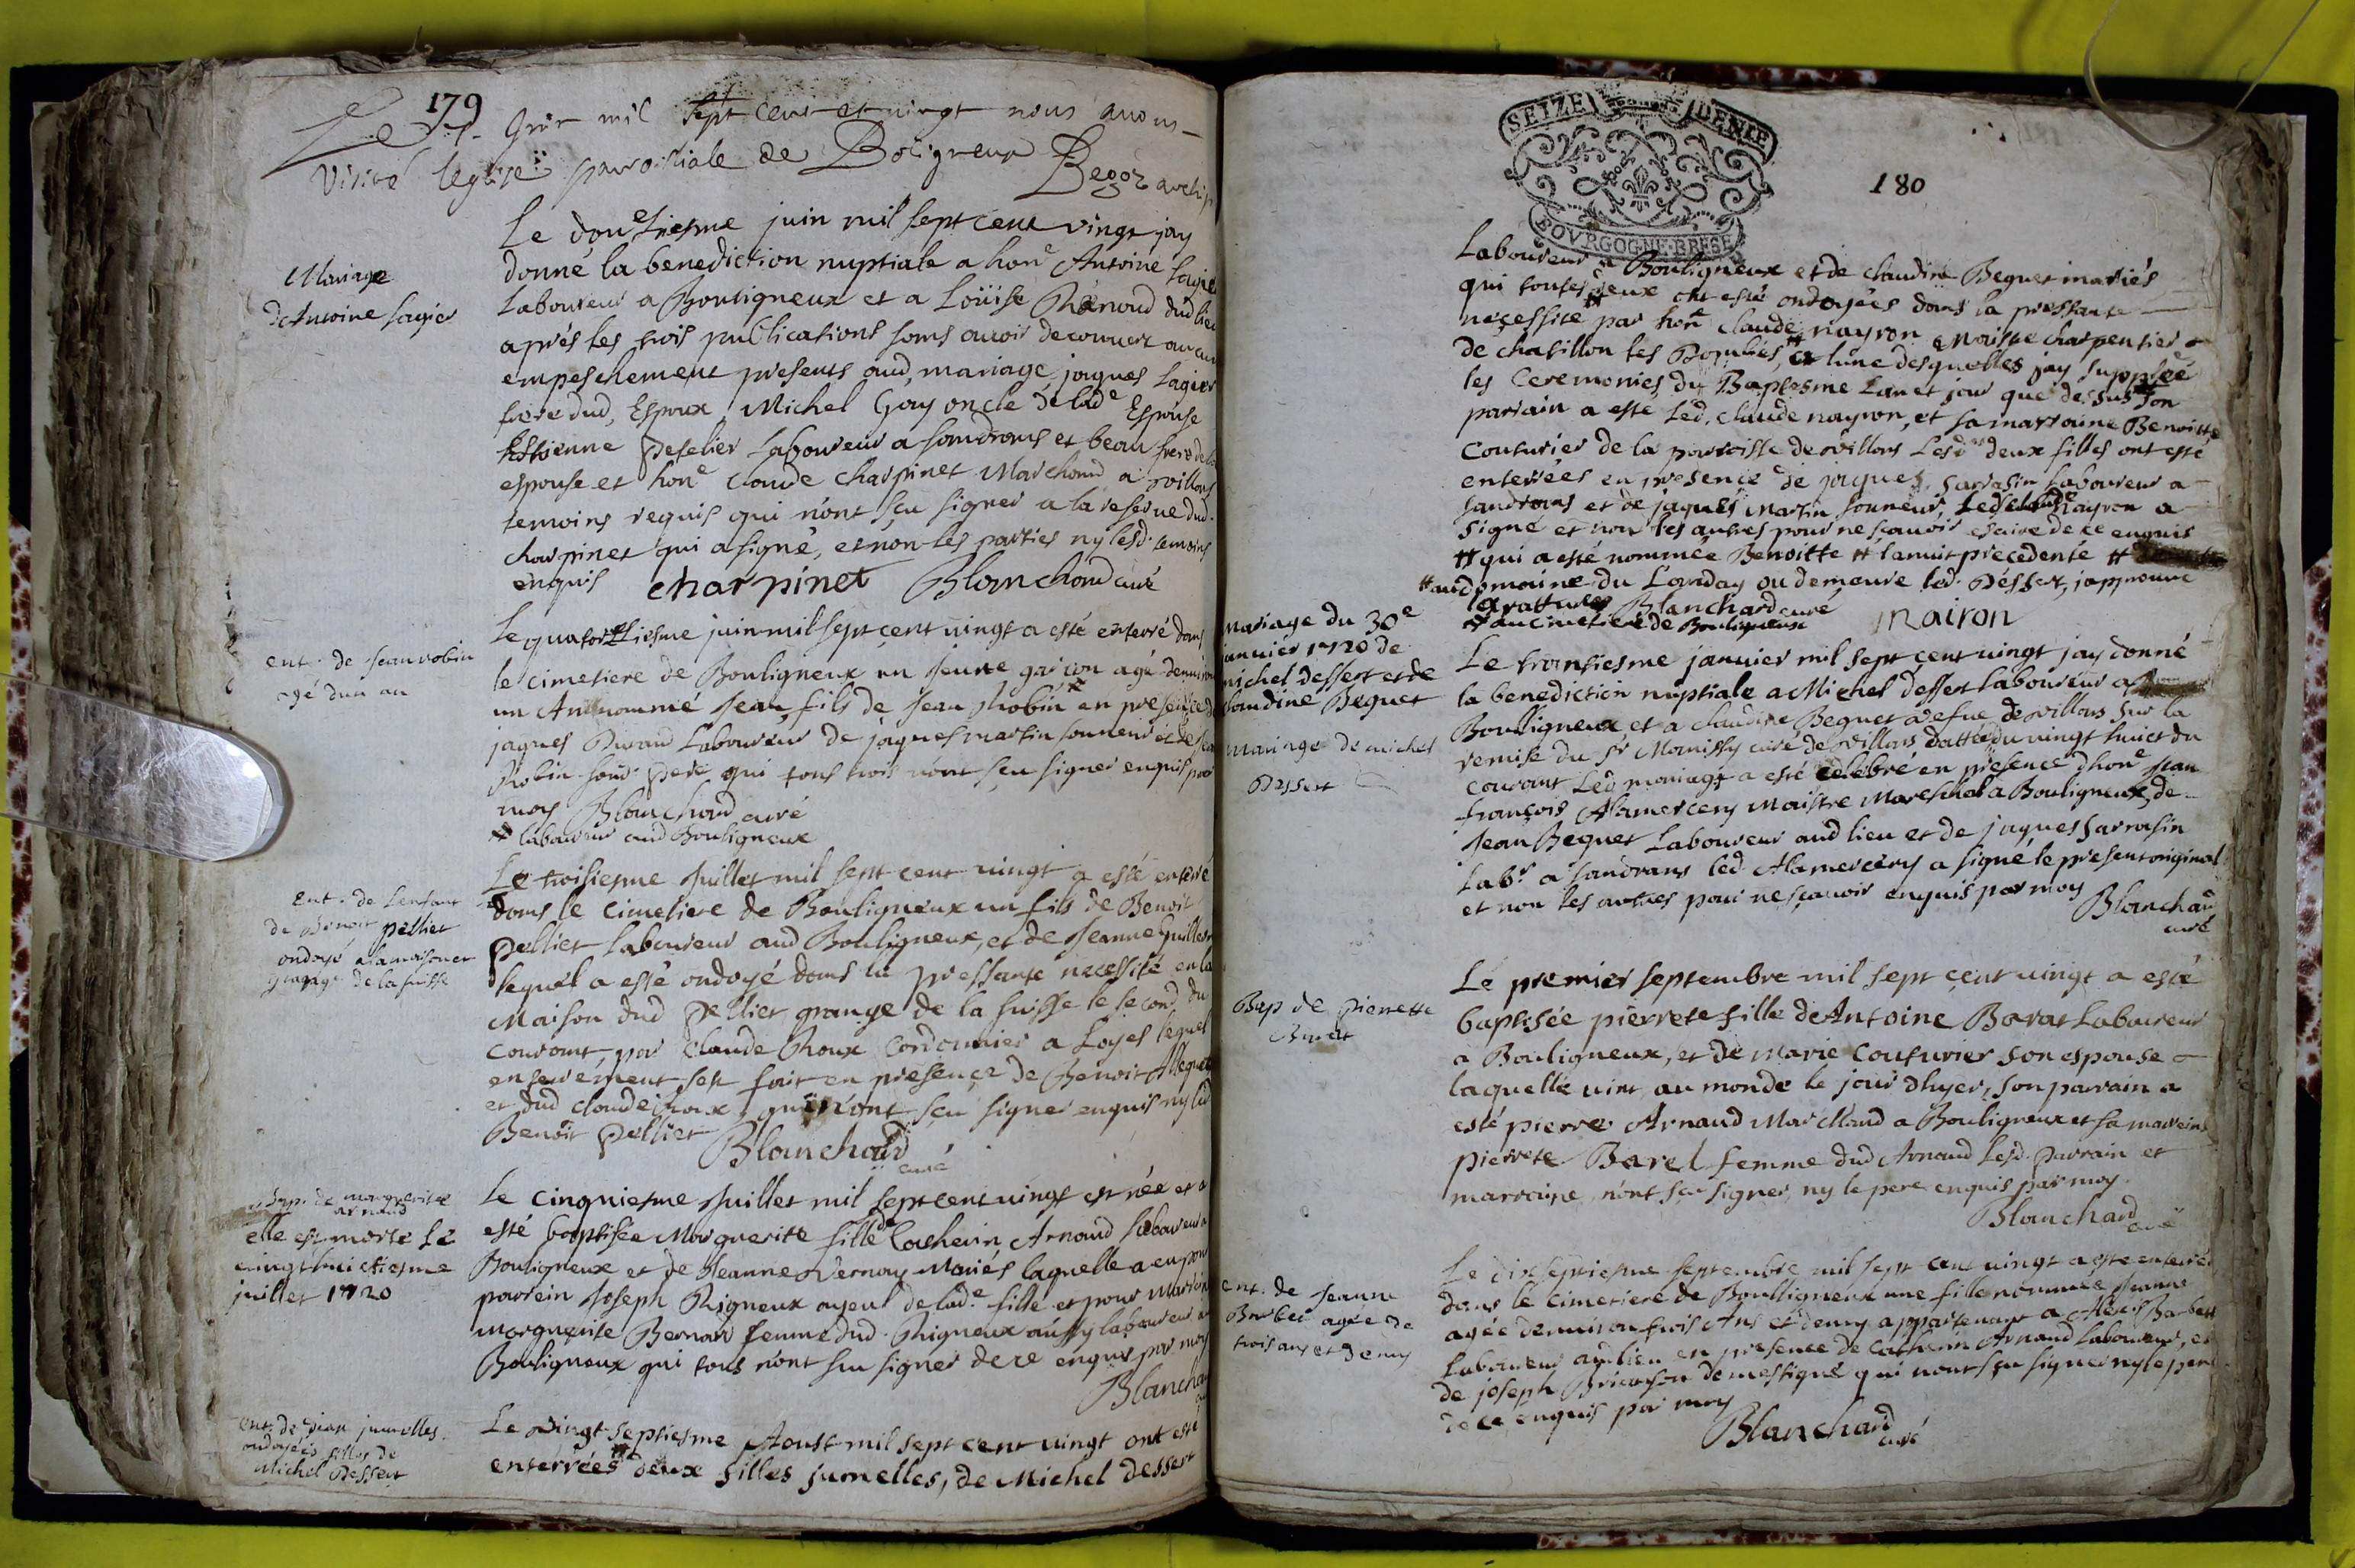 179
Le
mil sept cent et vingt nous avons
Visité leglise paroissiale de Boligneux
Begoz archip
Mariage
de Antoine Lagier
Le douziesme juin mil sept cent vingt jay
donné la benediction nuptiale a hone Antoine Lagier
Laboureur a Bouligneux et a Loüise Renoud dud lieu
aprés les trois publications sans avoir decouvert aucun
empeschement presents aud, mariage jaques Lagier
frere dud, Espoux Michel Goy oncle de lade Espouse
Estienne Peselier Laboureur a Sandrans et beau frere de la
espouse et hone Claude Charpinet Marchand a Villars
temoins requis qui n'ont sçu signer a la reserve dud.
Charpinet qui a signé, et non les parties ny lesd. temoins
enquis charpinet Blanchard curé
ent. de Jean robin
agé dun an
Le quatorziesme juin mil sept cent vingt a esté enterré dans
le cimetiere de Bouligneux un jeune garçon agé denviron
un An nommé Jean, fils de Jean Robin # en presence de
jaques Durand Laboureur de jaques martin sonneur et de Jean
Robin sond. pere qui tous trois n'ont sçu signer enquis par
moy Blanchard curé
# laboureur aud Bouligneux
Ent. de Lenfant
de Benoit pellier
ondoyé a la maison et
grange de la suisse
Le troisiesme Juillet mil sept cent vingt a esté enterré
dans le cimetiere de Bouligneux un fils de Benoit
Pellier laboureur aud Bouligneux, et de Jeanne
lequel a esté ondoyé dans la pressante necessité en la
Maison dud Pellier grange de la suisse le second du
courant, par Claude Roux Cordonnier a Loyes lequel
enterrement sest fait en presence de Benoit
et dud Claude Roux qui n'ont sçu signer enquis ny led
Benoit Pellier Blanchard
curé
Bap. de marguerite
arnaud
elle est morte Le
vingt huictiesme
juillet 1720
Le cinquiesme Juillet mil sept cent vingt est née et a
esté baptisée Marguerite fille de Catherin Arnaud Laboureur a
Bouligneux et de Jeanne Vernay Mariés laquelle a eu pour
parrein Joseph Rigneux ayeul de lade. fille et pour Marreine
marguerite Bernar femme dud. Rigneux aussy laboureur a
Bouligneux qui tous n'ont sçu signer de ce enquis par moy
Blanchard
ent. de deux jumelles
ondoyées filles de
Michel Dessert
Le Vingt septiesme Aoust mil sept cent vingt ont esté
enterrées # deux filles jumelles, de Michel dessert
SEIZE DENIE
BOVRGOGNE BRESSE
180
Laboureur a Bouligneux et de Claudine Beguet mariés
qui toutes deux ont esté ondoyées dans la pressante
necessité par hone Claude nayron Maistre charpentier
de chatillon les Dombes, a lune desquelles jay supplée
les Ceremonies du Baptesme Lan et jour que dessus # son
parrain a esté Led. Claude nayron, et sa marraine Benoitte
Couturier de la parroisse de Villars Lesd. deux filles ont esté
enterrées en presence de jaques Sarrasin Laboureur a
Sandrans et de jaques Martin sonneur, Led Claude Nayron a
signé et non les autres pour ne sçavoir escrire de ce enquis
# qui a esté nommée Benoitte # lanuit precedente #
# aud domaine du Londay ou demeure led. Dessert, japprouve
la rature Blanchard curé
# au cimetiere de Bouligneux
Mairon
mariage du 30e
janvier 1720 de
michel dessert et de
Claudine Beguet
Mariage de michel
Dessert
Le trantiesme janvier mil sept cent vingt jay donné
la benediction nuptiale a Michel dessert laboureur a
Bouligneux et a Claudine Beguet vefue de Villars sur la
remise du Sr Monissy curé de Villars dattée du vingt huict du
courant Led mariage a esté celebré en presence dhone Jean
françois Alamercery Maistre Mareschal a Bouligneux, de
Jean Beguet Laboureur aud lieu et de jaques Sarrasin
Labr a Sandrans led. Alamercery a signé le present original
et non les autres pour ne sçavoir enquis par moy
Blanchard
curé
Bap de Pierrette
Le premier septembre mil sept cent vingt a esté
baptisée pierrete fille de Antoine Barat Laboureur
a Bouligneux, et de Marie Couturier son espouse
laquelle vint au monde le jour dhyer, son parrain a
esté pierre Arnaud Marchand a Bouligneux et sa marreine
pierrete Barel femme dud Arnaud Lesd. parrain et
marraine, n'ont sçu signer, ny le pere enquis par moy
Blanchard
curé
ent. de Jeanne
Barbet agée de
trois ans et demy
Le dixseptiesme septembre mil sept cent vingt a esté enterrée
dans le cimetiere de Boulligneux une fille nommée Jeanne
agée denviron trois Ans et demy appartenant a Alexis Barbet
Laboureur aud lieu en presence de Catherin Arnaud Laboureur, et
de joseph domestique qui nont sçu signer ny le pere
de ce enquis par moy
Blanchard
curé